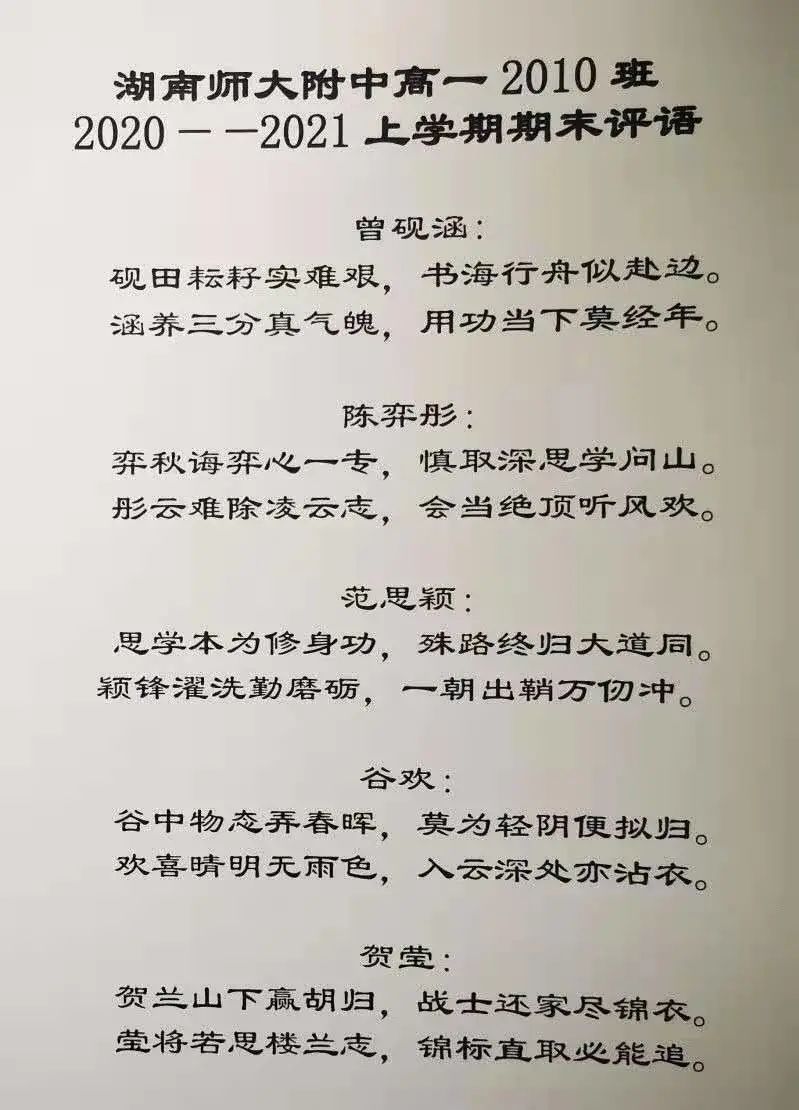 湖南师大附中高一2010班
2020－－2021上学期期末评语
曾砚涵：
砚田耘耔实难艰，书海行舟似赴边。
涵养三分真气魄，用功当下莫经年。
陈弈彤：
弈秋诲弈心一专，慎取深思学问山。
彤云难除凌云志，会当绝顶听风欢。
范思颖：
思学本为修身功，殊路终归大道同。
颖锋濯洗勤磨砺，一朝出鞘万仞冲。
谷欢：
谷中物态弄春晖，莫为轻阴便拟归。
欢喜晴明无雨色，入云深处亦沾衣。
贺莹：
贺兰山下赢胡归，战士还家尽锦衣。
莹将若思楼兰志，锦标直取必能追。